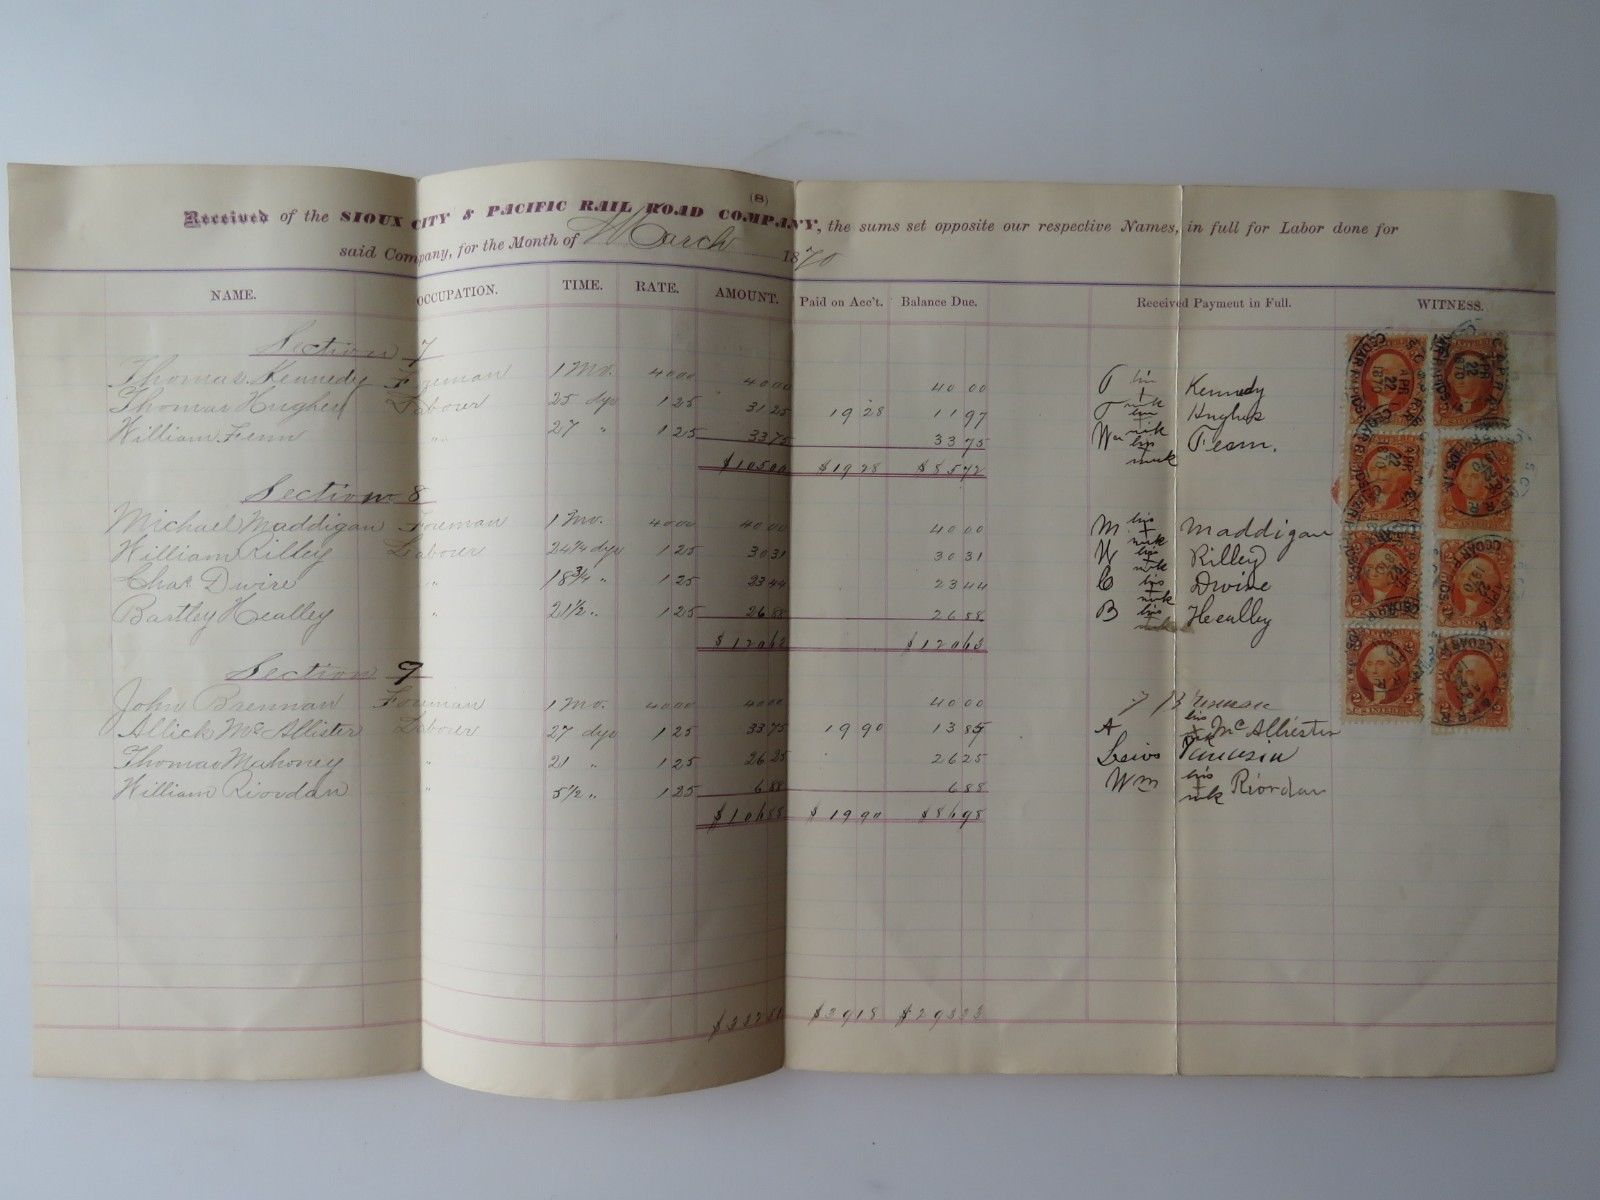 (8)
Received of the SIOUX CITY & PACIFIC RAIL ROAD COMPANY, the sums set opposite our respective Names, in full for Labor done for
said Company, for the Month of March 1870
NAME. OCCUPATION. TIME. RATE. AMOUNT. Paid on Acc't. Balance Due. Received Payment in Full. WITNESS.
Section 7
Thomas Kennedy Foreman 1 Mo. 40 00 40 00 40 00 T his + mk Kennedy
Thomas Hughes Laborer 25 dys 1 25 31 25 19 28 11 97 T his + mk Hughes
William Fenn " 27 " 1 25 33 75 33 75 Wm his + mk
$105 00 $19 28 $85 72
Section 8
Michael Maddigan Foreman 1 Mo. 40 00 40 00 40 00 M his + mk Maddigan
William Rilley Laborer 24 1/4 dys 1 25 30 31 30 31 W his + mk Rilley
Chas Dwire " 18 3/4 " 1 25 23 44 23 44 C his + mk Dwire
Bartley Healley " 21 1/2 " 1 25 26 88 26 88 B his + mk Healley
$120 63 $120 63
Section 9
John Brennan Foreman 1 Mo. 40 00 40 00 40 00
Allick McAllister Laborer 27 dys 1 25 33 75 19 90 13 85 A his + mk McAllister
Thomas Mahoney " 21 " 1 25 26 25 26 25
William Riordan " 5 1/2 " 1 25 6 88 6 88 Wm his + mk Riordan
$106 88 $19 90 $86 98
$332 51 $39 18 $293 33